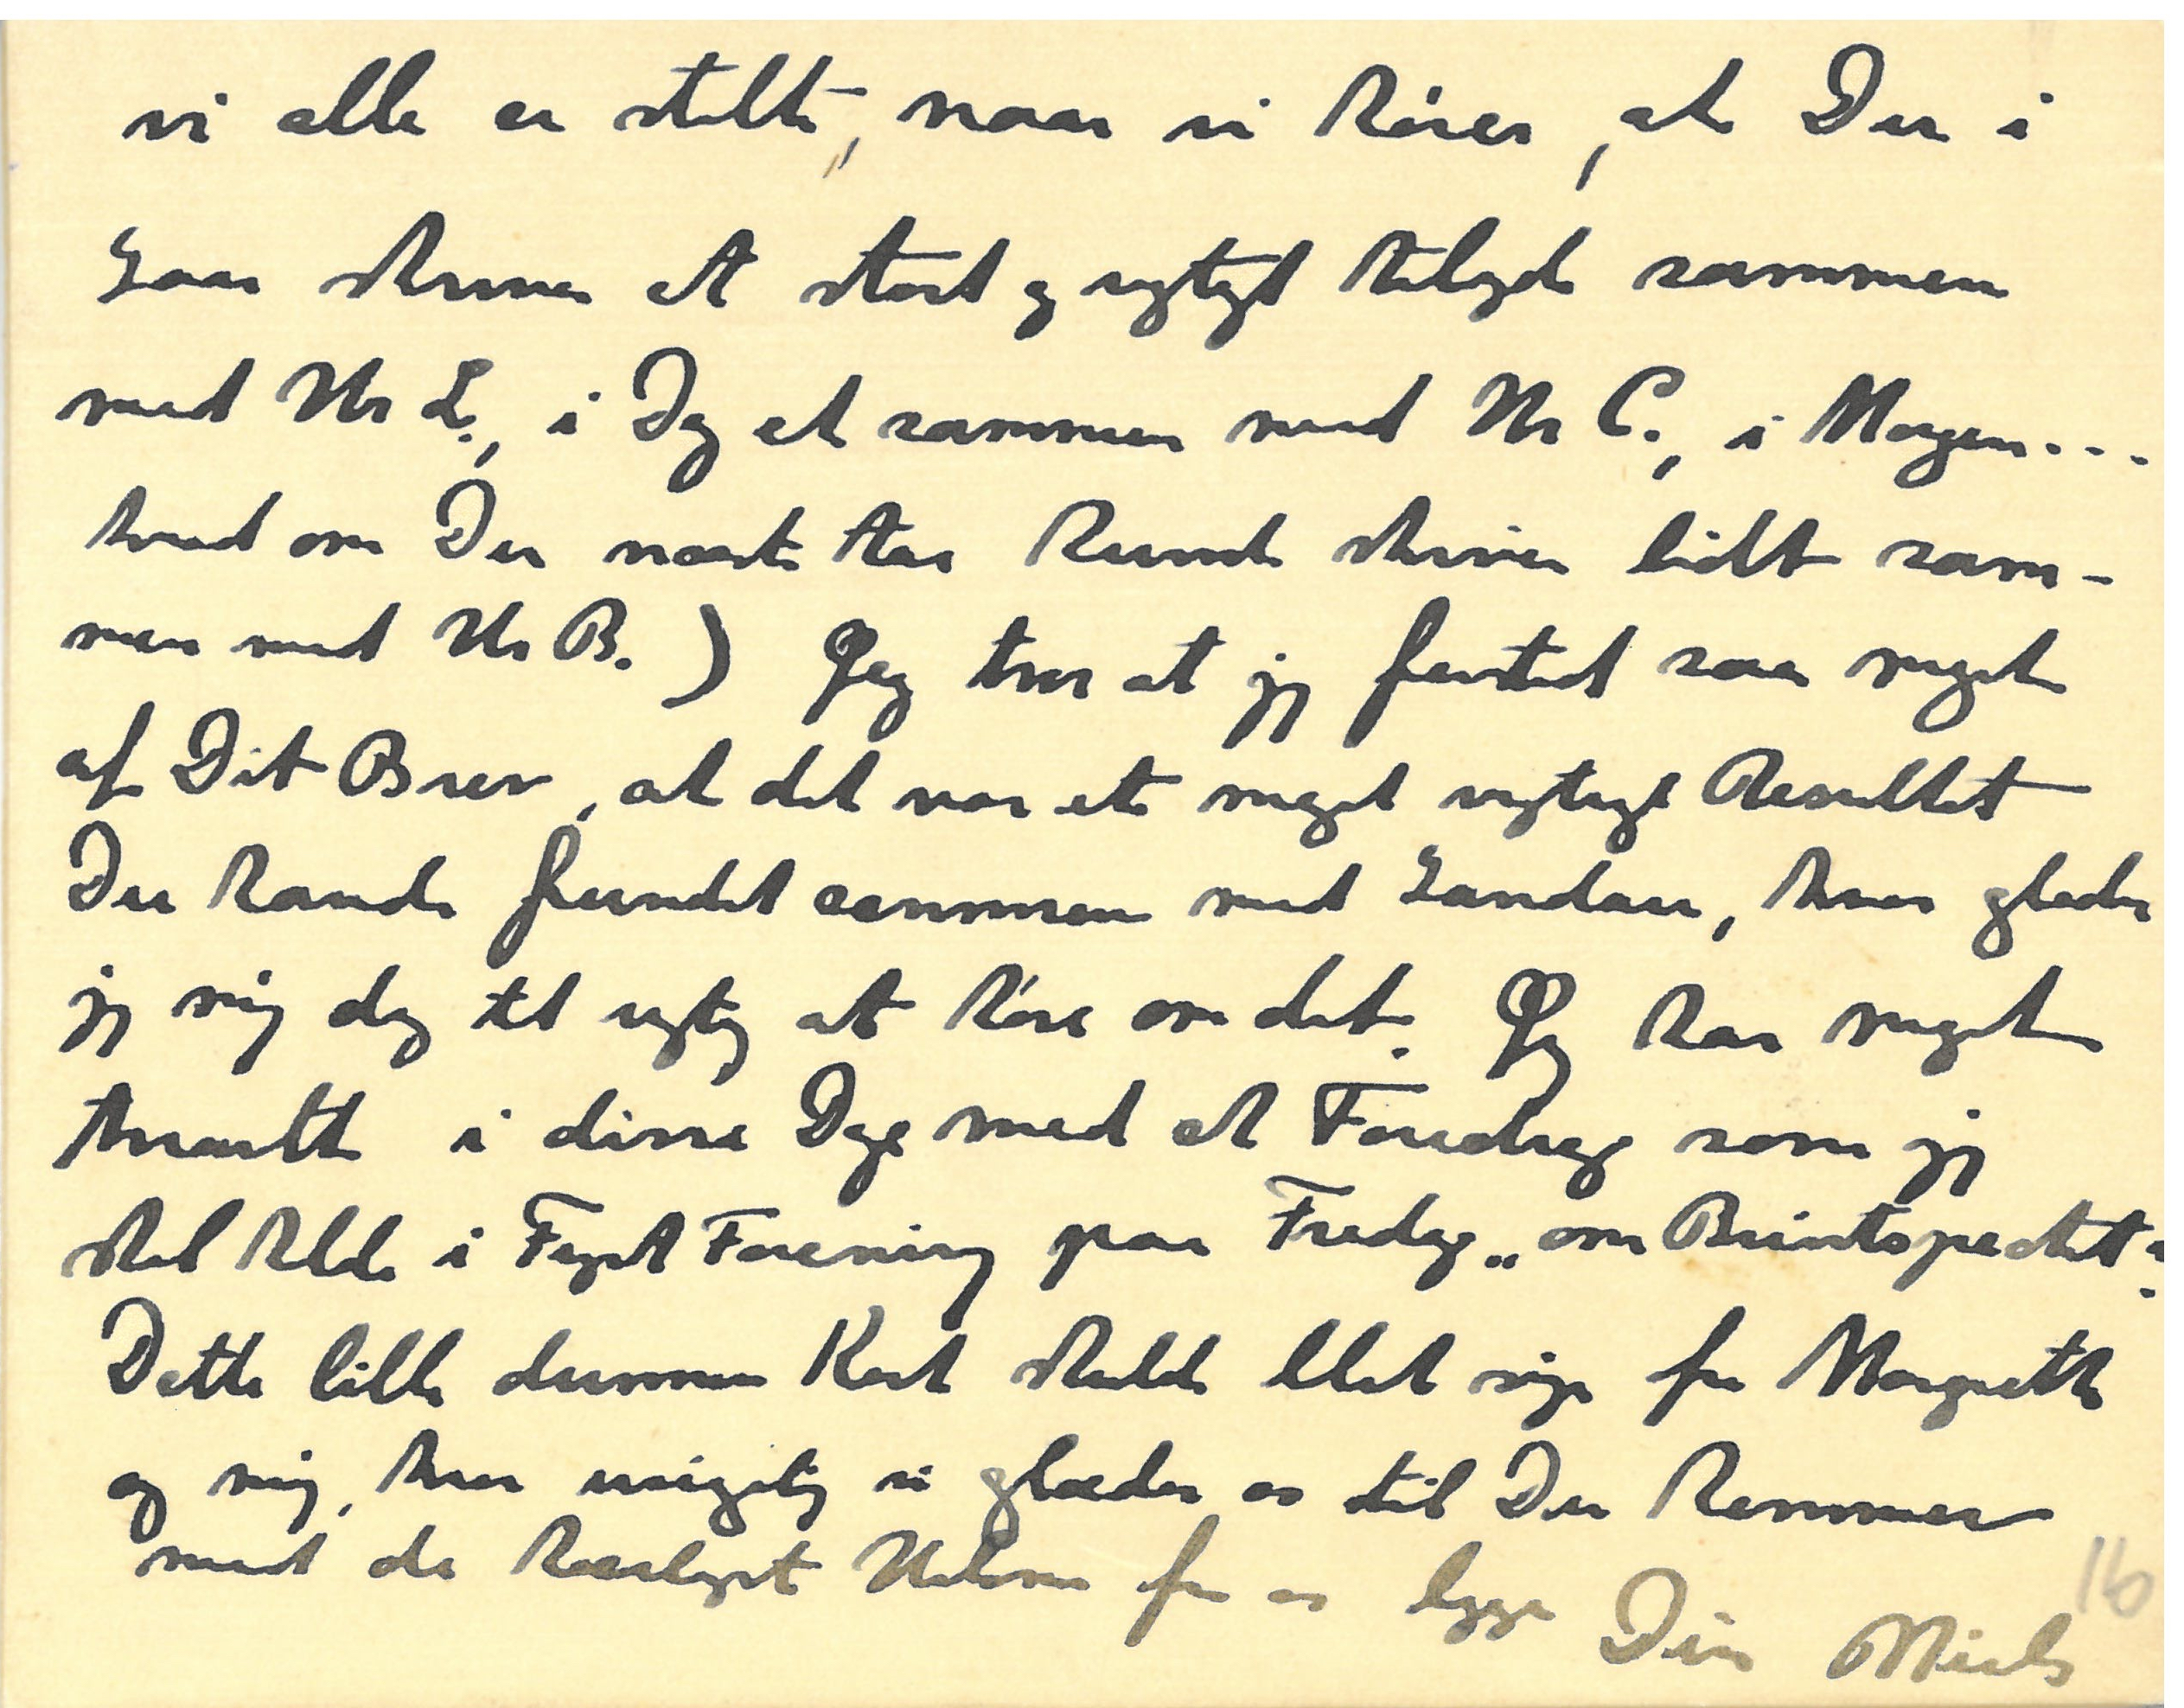 vi alle er stillet, naar vi hører, at Du i
Gaar skrev et stort og vigtigt Arbejde sammen
med Hr L., i Dag et sammen med Hr C., i Morgen...
hvad om Du næste Aar kunde skrive lidt sam-
men med Hr B.) Jeg tror at jeg forstod saa meget
af Dit Brev, at det var et meget vigtigt Resultat
Du havde fundet sammen med Landau, hvor glæder
jeg mig dog til rigtig at høre om det. Jeg har meget
travlt i disse Dage med et Foredrag som jeg
skal holde i Fysisk Forening paa Fredag „om Brintspektret".
Dette lille dumme Kort skulde blot sige fra Margrethe
og mig, hvor usigelig vi glæder os til Du kommer
med de kærligste Hilsner fra os begge Din Niels
16